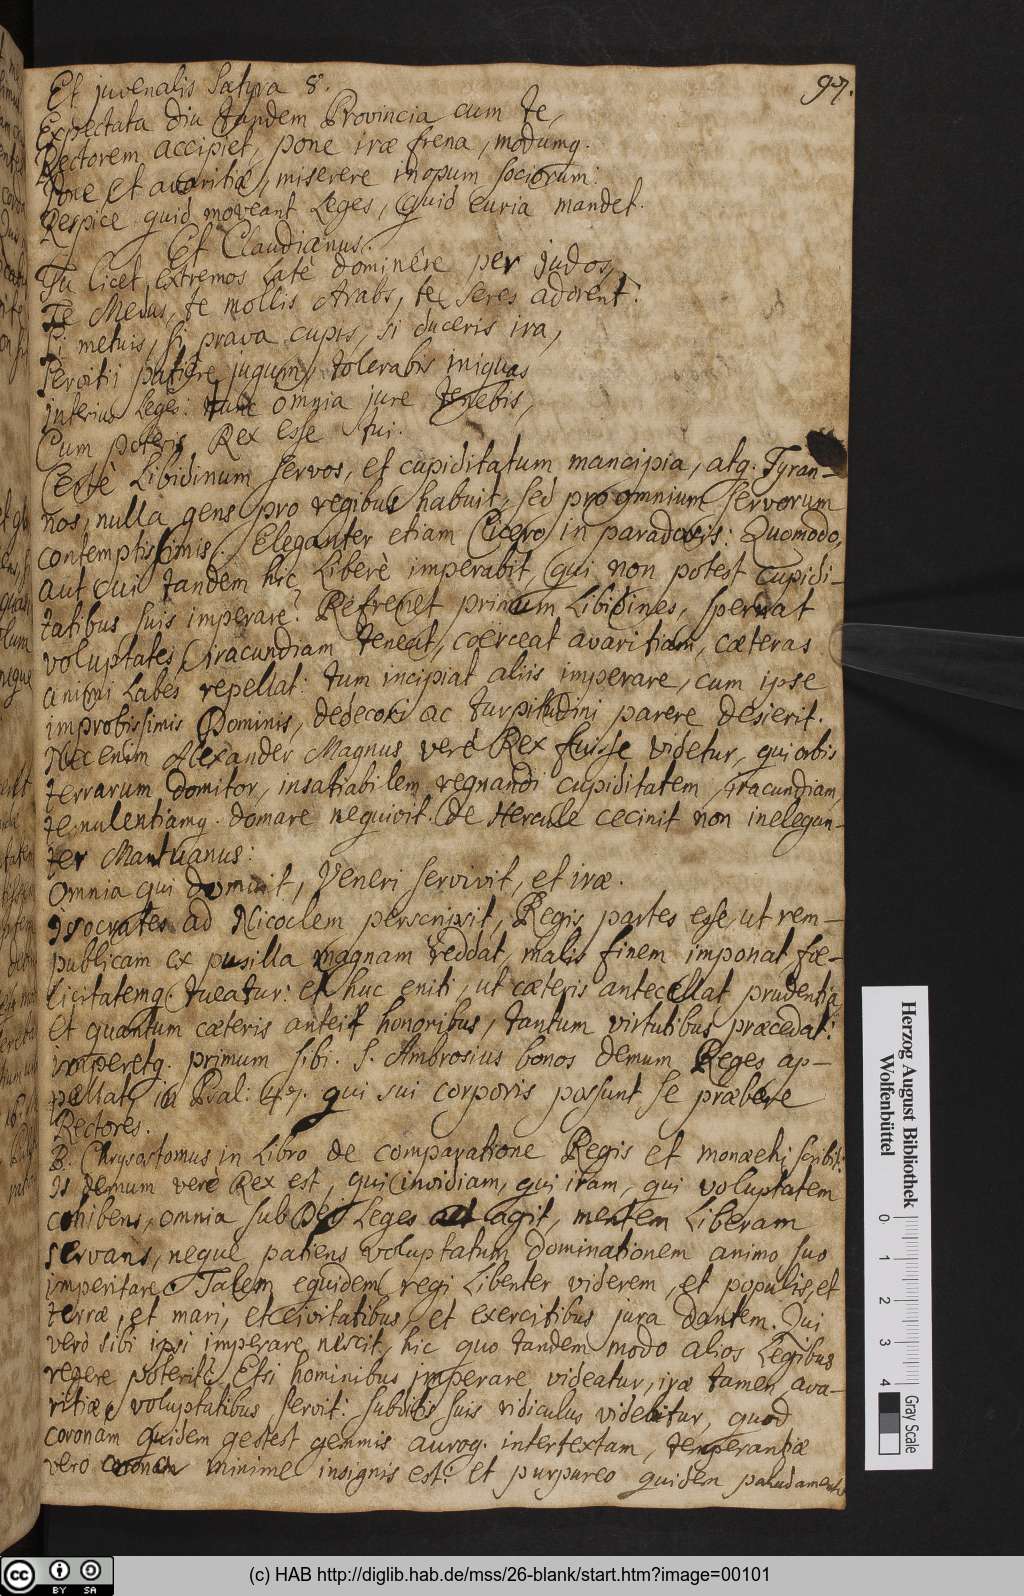 97.
Et juvenalis Satyra 8.
Expectata diu tandem Provincia cum te,
Rectorem accipiet, pone iræ frena, modumq.
Pone et avaritiæ, miserere inopum sociorum:
Respice quid moveant Leges, quid curia mandet.
Et Claudianus.
Tu licet extremos Latè dominére per judos,
Te Medus, te mollis Arabs, te Seres adorent:
Si metuis, si prava cupis, si duceris ira,
Servitii patiêre jugum, tolerabis iniquas
interius Leges: tunc omnia jure tenebis,
Cum poteris Rex esse tui.
Certè Libidinum servos, et cupiditatum mancipia, atq. Tyran-
nos, nulla gens pro regibus habuit, sed pro omnium servorum
contemptissimis. Eleganter etiam Cicero in paradoxis: Quomodo,
aut cui tandem hic Liberè imperabit, qui non potest cupidi-
tatibus suis imperare? Refrenet primum Libidines, spernat
voluptates, iracundiam teneat, coërceat avaritiam, cæteras
animi Labes repellat: tum incipiat aliis imperare, cum ipse
improbissimis Dominis, dedecori ac turpitudini parere desierit.
Nec enim Alexander Magnus veré Rex fuisse videtur, qui orbis
terrarum domitor, insatiabilem regnandi cupiditatem, iracundiam,
temulentiamq. domare nequivit. De Hercule cecinit non inelegan-
ter Mantuanus:
Omnia qui domuit, Veneri servivit, et iræ.
Isocrates ad Nicoclem perscripsit, Regis partes esse, ut rem-
publicam ex pusilla magnam reddat, malis finem imponat, fœ-
licitatemq. tueatur: et huc eniti, ut cæteris antecellat prudentia,
et quantum cæteris anteit honoribus, tantum virtutibus præcedat:
imperetq. primum sibi. S. Ambrosius bonos demum Reges ap-
pellat, in Psal: 47. qui sui corporis possunt se præbere
Rectores.
B. Chrysostomus in Libro de comparatione Regis et monachi scribit:
Is demum vere Rex est, qui invidiam, qui iram, qui voluptatem
cohibens, omnia sub Dei Leges agit, mentem Liberam
servans, neque patiens voluptatum dominationem animo suo
imperitare. Talem equidem regi Libenter viderem, et populis, et
terræ, et mari, et civitatibus, et exercitibus jura dantem. Qui
verò sibi ipsi imperare nescit, hic quo tandem modo alios Legibus
regere poterit? Etsi hominibus imperare videatur, iræ tamen, ava-
ritiæ, voluptatibus servit: subditis suis ridiculus videbitur, quod
coronam quidem gestet gemmis auroq. intertextam, temperantiæ
vero corona minimè insignis est: et purpureo quidem paludamento
Herzog August Bibliothek
Wolfenbüttel
0 1 2 3 4
Gray Scale
cc BY SA
(c) HAB http://diglib.hab.de/mss/26-blank/start.htm?image=00101